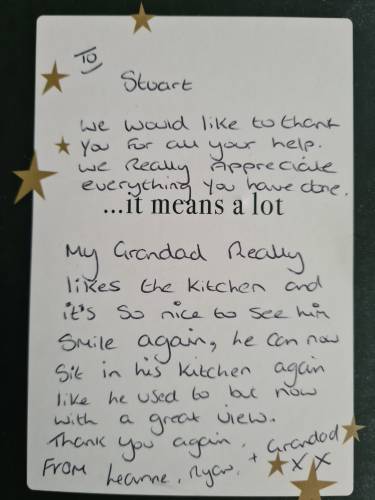 To
Stuart
We would like to thank
you for all your help.
We Really Appreciate
everything you have done.
...it means a lot
My Grandad Really
likes the kitchen and
it's so nice to see him
smile again, he can now
sit in his kitchen again
like he used to but now
with a great view.
Thank you again.
From Leanne, Ryan, + Grandad
X X